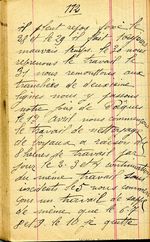 il pleut
28 et le 29 il fait toujours
mauvais temps. le 30 nous
reprenons le travail le
31 nous remontons aux
tranchées de deuxième
lignes nous y passons
notre jour de Pâques
le 1er avril nous commençons
le travail de nettoyage
de boyaux a raison de
6 heures de travail par
jour le 2. 3 et 4 continuation
du même travail sans
incident le 5 nous avons
un travail de
de même que le 6. 7
8 et 9 le 10 je quitte